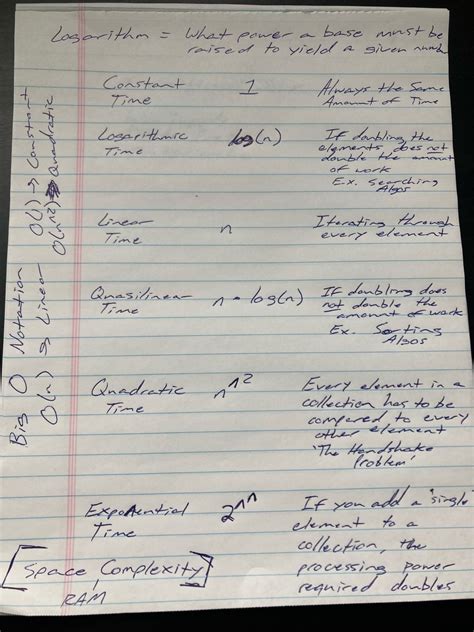 Logarithm = What power a base must be
raised to yield a given numb
Constant 1 Always the Same
Time Amount of Time
Logarithmic log(n) If doubling the
Time elements does not
double the amount
of work
Ex. Searching
Algos
Linear n Iterating through
Time every element
Quasilinear n * log(n) If doubling does
Time not double the
amount of work
Ex. Sorting
Algos
Quadratic n^2 Every element in a
Time collection has to be
compared to every
other element
'The Handshake
Problem'
Exponential 2^n If you add a 'single'
Time element to a
collection, the
processing power
required doubles
[Space Complexity]
RAM
Big O Notation O(1) → Constant
O(n) → Linear O(n^2) → Quadratic